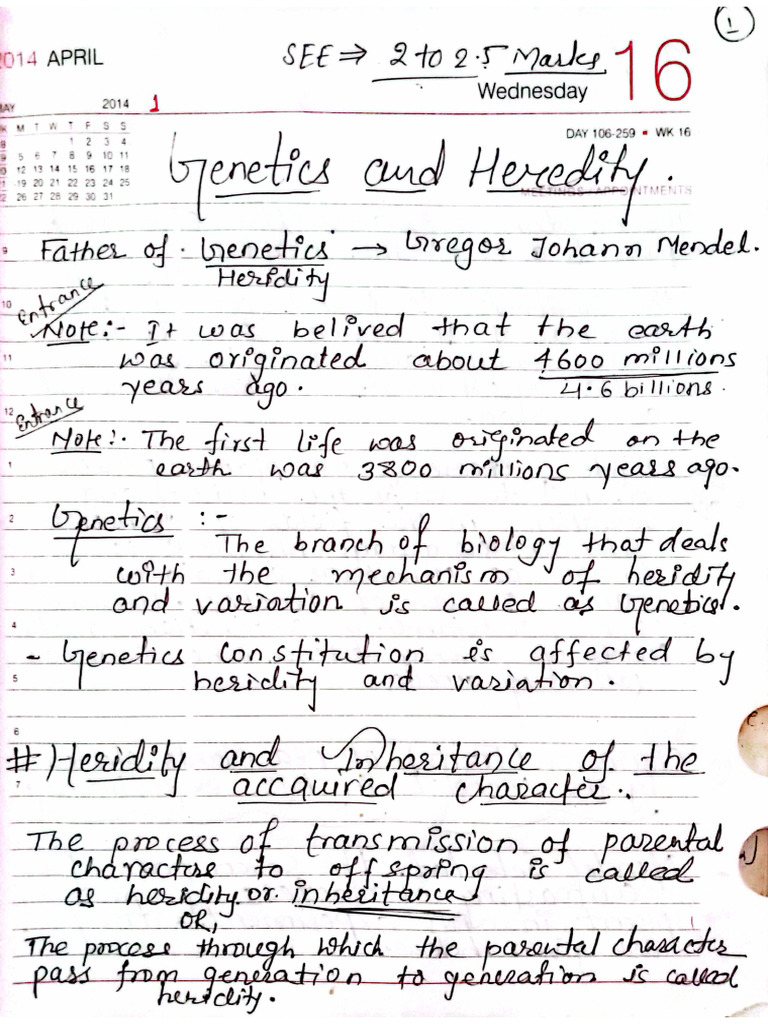 1
2014 APRIL
SEE ⇒ 2 to 2.5 Marks
16
Wednesday
MAY 2014
1
M T W T F S S
1 2 3 4
5 6 7 8 9 10 11
12 13 14 15 16 17 18
19 20 21 22 23 24 25
26 27 28 29 30 31
DAY 106-259 ▪ WK 16
Genetics and Heredity.
MEETINGS / APPOINTMENTS
9
Father of Genetics → Gregor Johann Mendel.
Heridity
10
Entrance
Note:- It was belived that the earth
11
was originated about 4600 millions
years ago. 4.6 billions.
12
Entrance
Note:- The first life was originated on the
1
earth was 3800 millions years ago.
2
Genetics :-
The branch of biology that deals
3
with the mechanism of heridity
and variation is called as Genetics.
4
- Genetics constitution is affected by
5
heridity and variation.
6
#) Heridity and Inheritance of the
7
accquired character.
The process of transmission of parental
charactore to offspring is called
as heridity or inheritance
OR,
The process through which the parental character
pass from generation to generation is called
heridity.